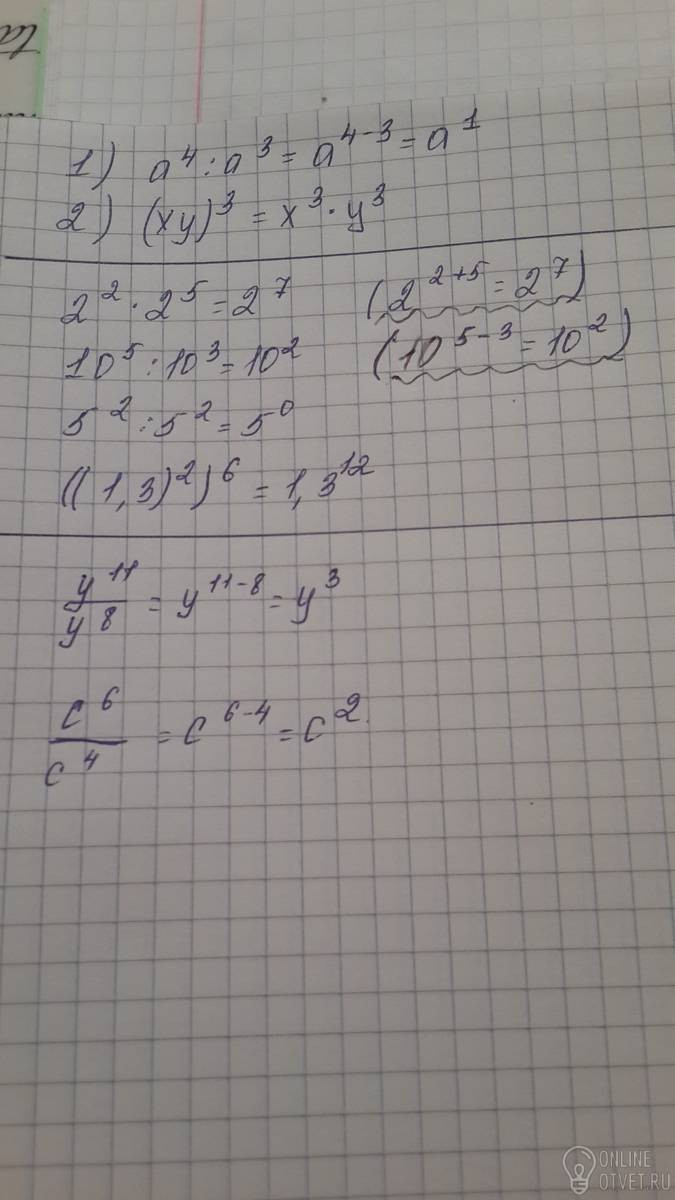 1) a⁴ : a³ = a⁴⁻³ = a¹
2) (xy)³ = x³ · y³
2² · 2⁵ = 2⁷ (2²⁺⁵ = 2⁷)
10⁵ : 10³ = 10² (10⁵⁻³ = 10²)
5² : 5² = 5⁰
((1,3)²)⁶ = 1,3¹²
y¹¹/y⁸ = y¹¹⁻⁸ = y³
c⁶/c⁴ = c⁶⁻⁴ = c²
ONLINE
OTVET.RU